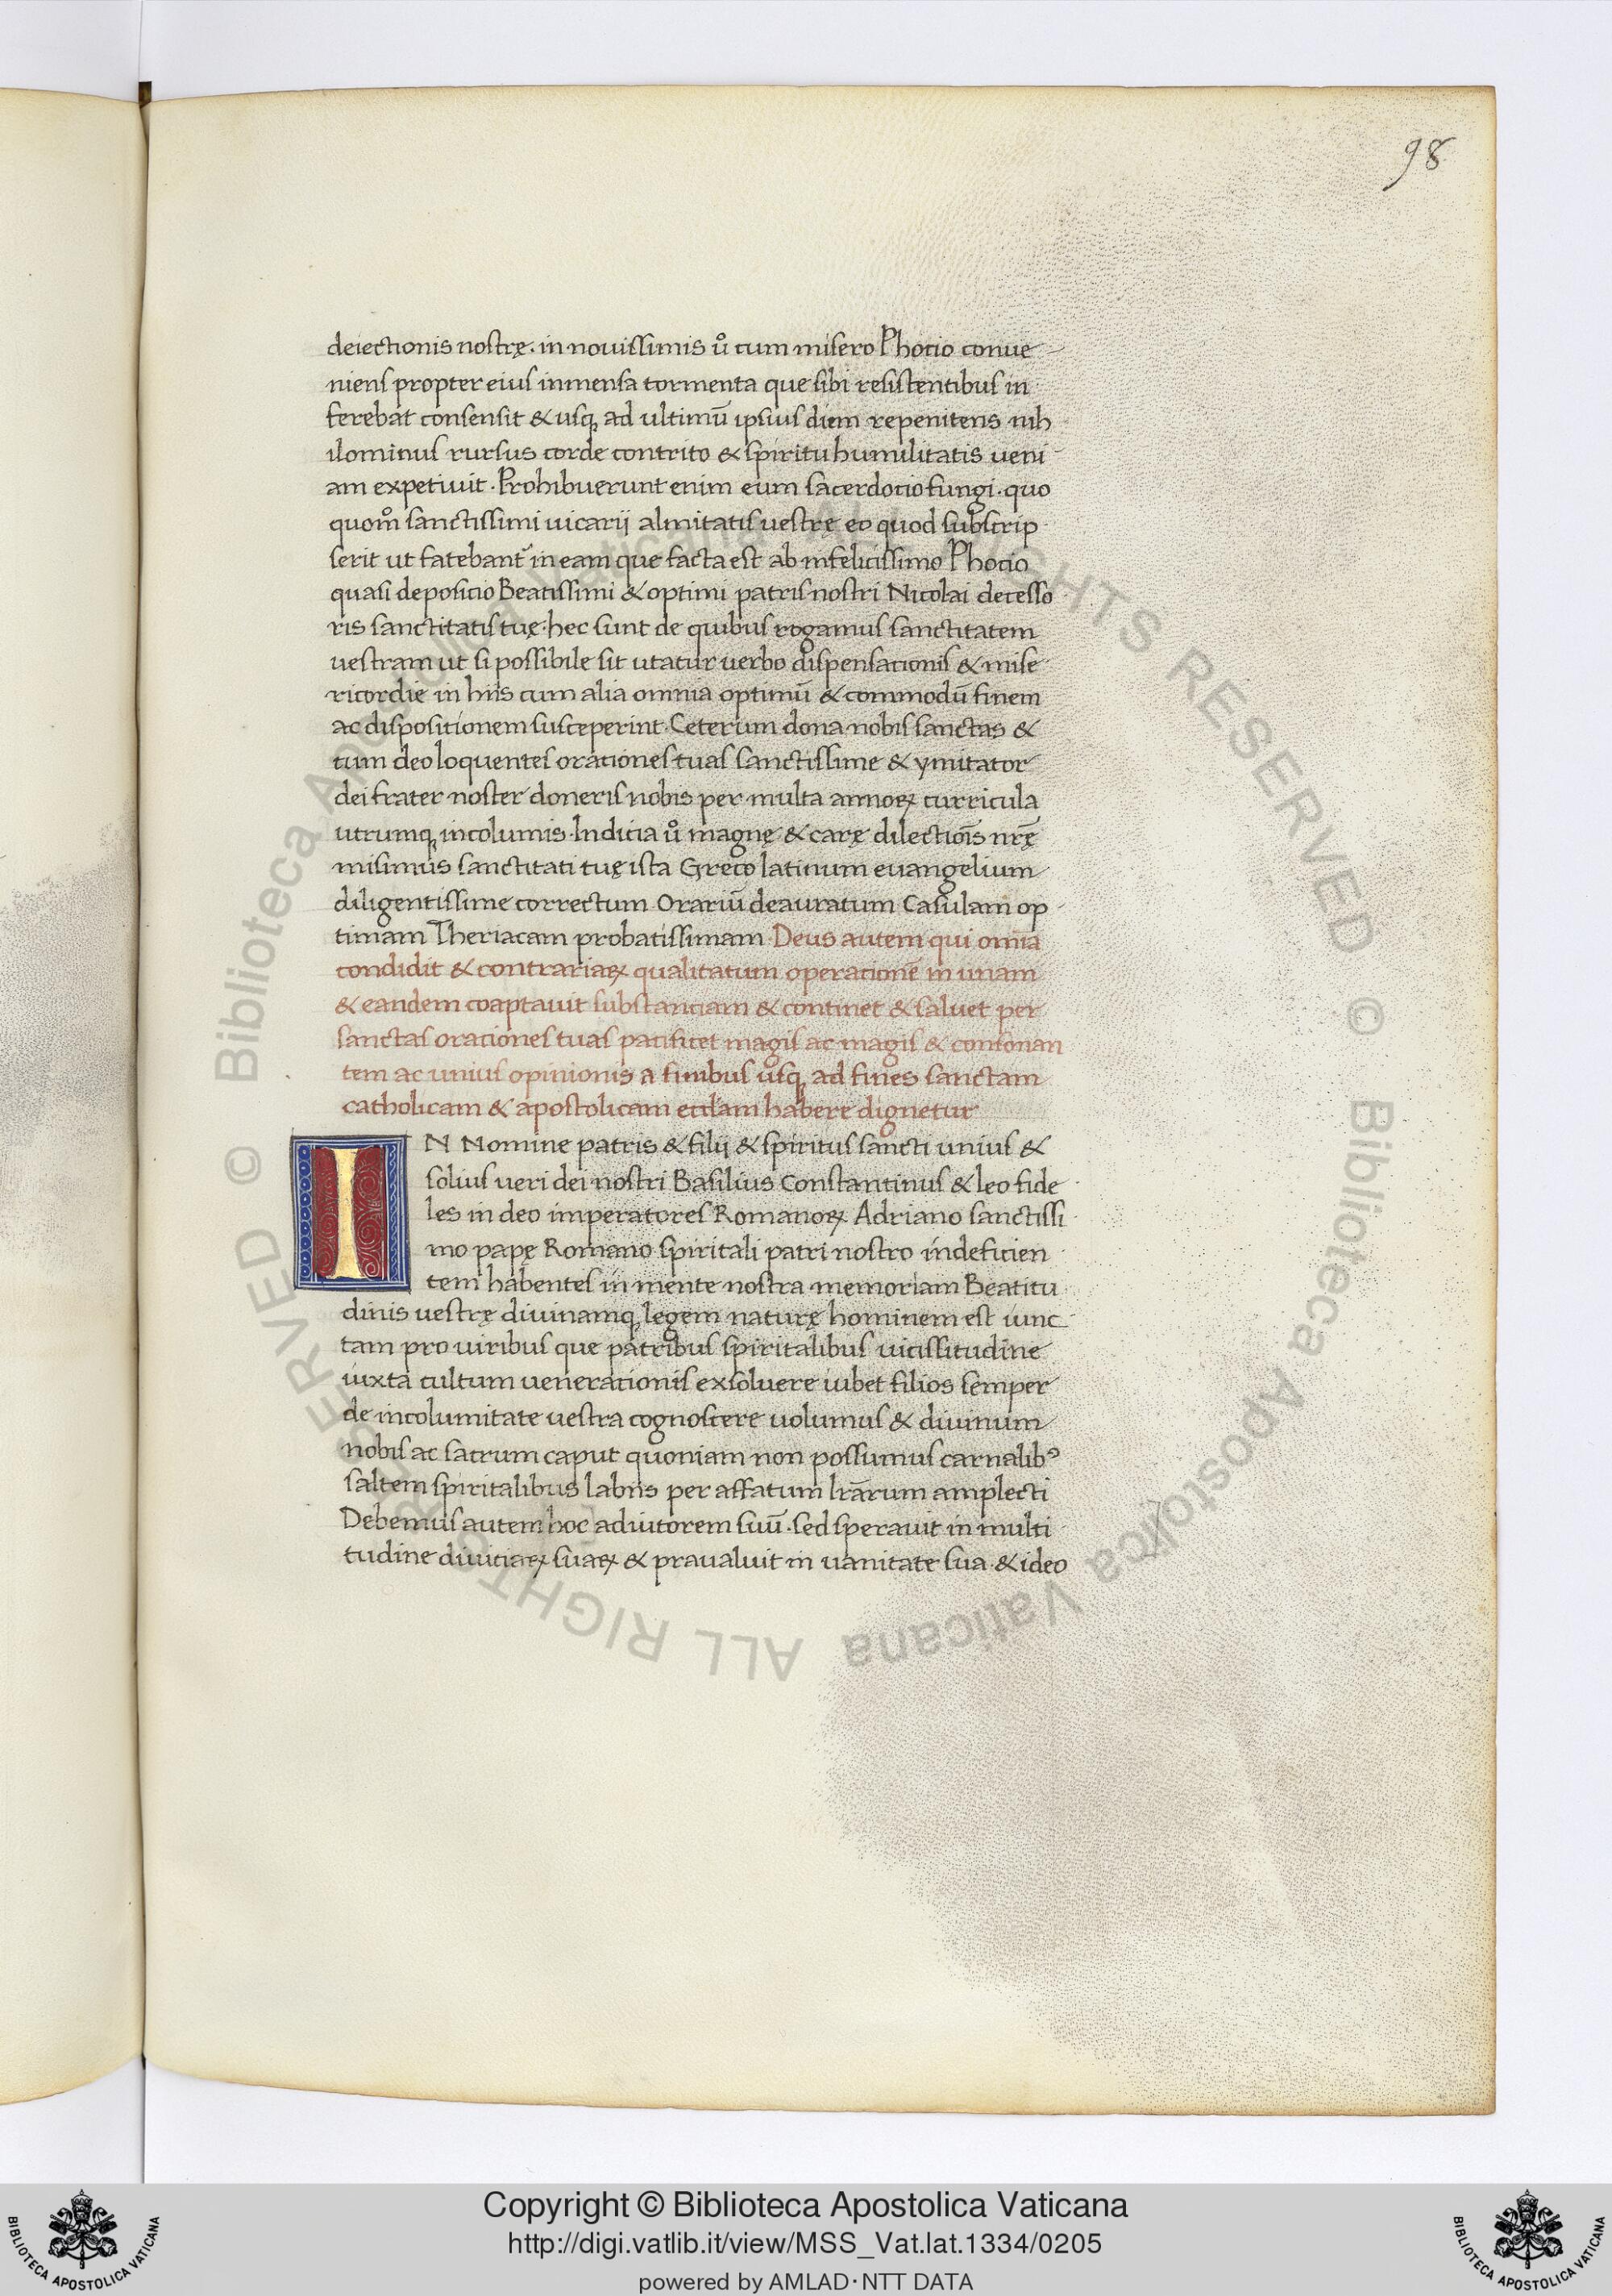 98
deiectionis nostrę. in nouissimis ůo cum misero Photio conue
niens propter eius inmensa tormenta que sibi resistentibus in
ferebat consensit & usq; ad ultimū ipsius diem repenitens nih
ilominus rursus corde contrito & spiritu humilitatis ueni
am expetiuit. Prohibuerunt enim eum sacerdotio fungi. quo
quomͦ sanctissimi uicarij almitatis uestrę eo quod subscrip
serit ut fatebant᷑ in eam que facta est ab infelicissimo Photio
quasi depositio Beatissimi & optimi patris nostri Nicolai decesso
ris sanctitatis tuę. hec sunt de quibus rogamus sanctitatem
uestram ut si possibile sit utatur uerbo dispensationis & mise
ricordie in hiis cum alia omnia optimū & commodū finem
ac dispositionem susceperint. Ceterum dona nobis sanctas &
cum deo loquentes orationes tuas sanctissime & ymitator
dei frater noster doneris nobis per multa annoꝝ curricula
utrumq; incolumis. Indicia uͦ magnę & carę dilectiōis nr̄ę
misimus sanctitati tuę ista Greco latinum euangelium
diligentissime correctum Orariū deauratum Casulam op
timam Theriacam probatissimam. Deus autem qui omīa
condidit & contrariaꝝ qualitatum operationē in unam
& eandem coaptauit substantiam & continet & saluet per
sanctas orationes tuas pacificet magis ac magis & consonan
tem ac unius opinionis a finibus usq; ad fines sanctam
catholicam & apostolicam eccl̄am habere dignetur
IN Nomine patris & filij & spiritus sancti unius &
solius ueri dei nostri Basilius Constantinus & leo fide
les in deo imperatores Romanoꝝ Adriano sanctissi
mo papę Romano spiritali patri nostro indeficien
tem habentes in mente nostra memoriam Beatitu
dinis uestrę diuinamq; legem naturę hominem est iunc
tam pro uiribus que patribus spiritalibus uicissitudine
iuxta cultum uenerationis exsoluere iubet filios semper
de incolumitate uestra cognoscere uolumus & diuinum
nobis ac sacrum caput quoniam non possumus carnalibꝰ
saltem spiritalibus labiis per affatum lr̄arum amplecti
Debemus autem hoc adiutorem suū. sed sperauit in multi
tudine diuitiaꝝ suaꝝ & praualuit in uanitate sua. & ideo
© Biblioteca Apostolica Vaticana ALL RIGHTS RESERVED © Biblioteca Apostolica Vaticana ALL RIGHTS RESERVED
Copyright © Biblioteca Apostolica Vaticana
http://digi.vatlib.it/view/MSS_Vat.lat.1334/0205
powered by AMLAD·NTT DATA
BIBLIOTECA APOSTOLICA VATICANA
BIBLIOTECA APOSTOLICA VATICANA